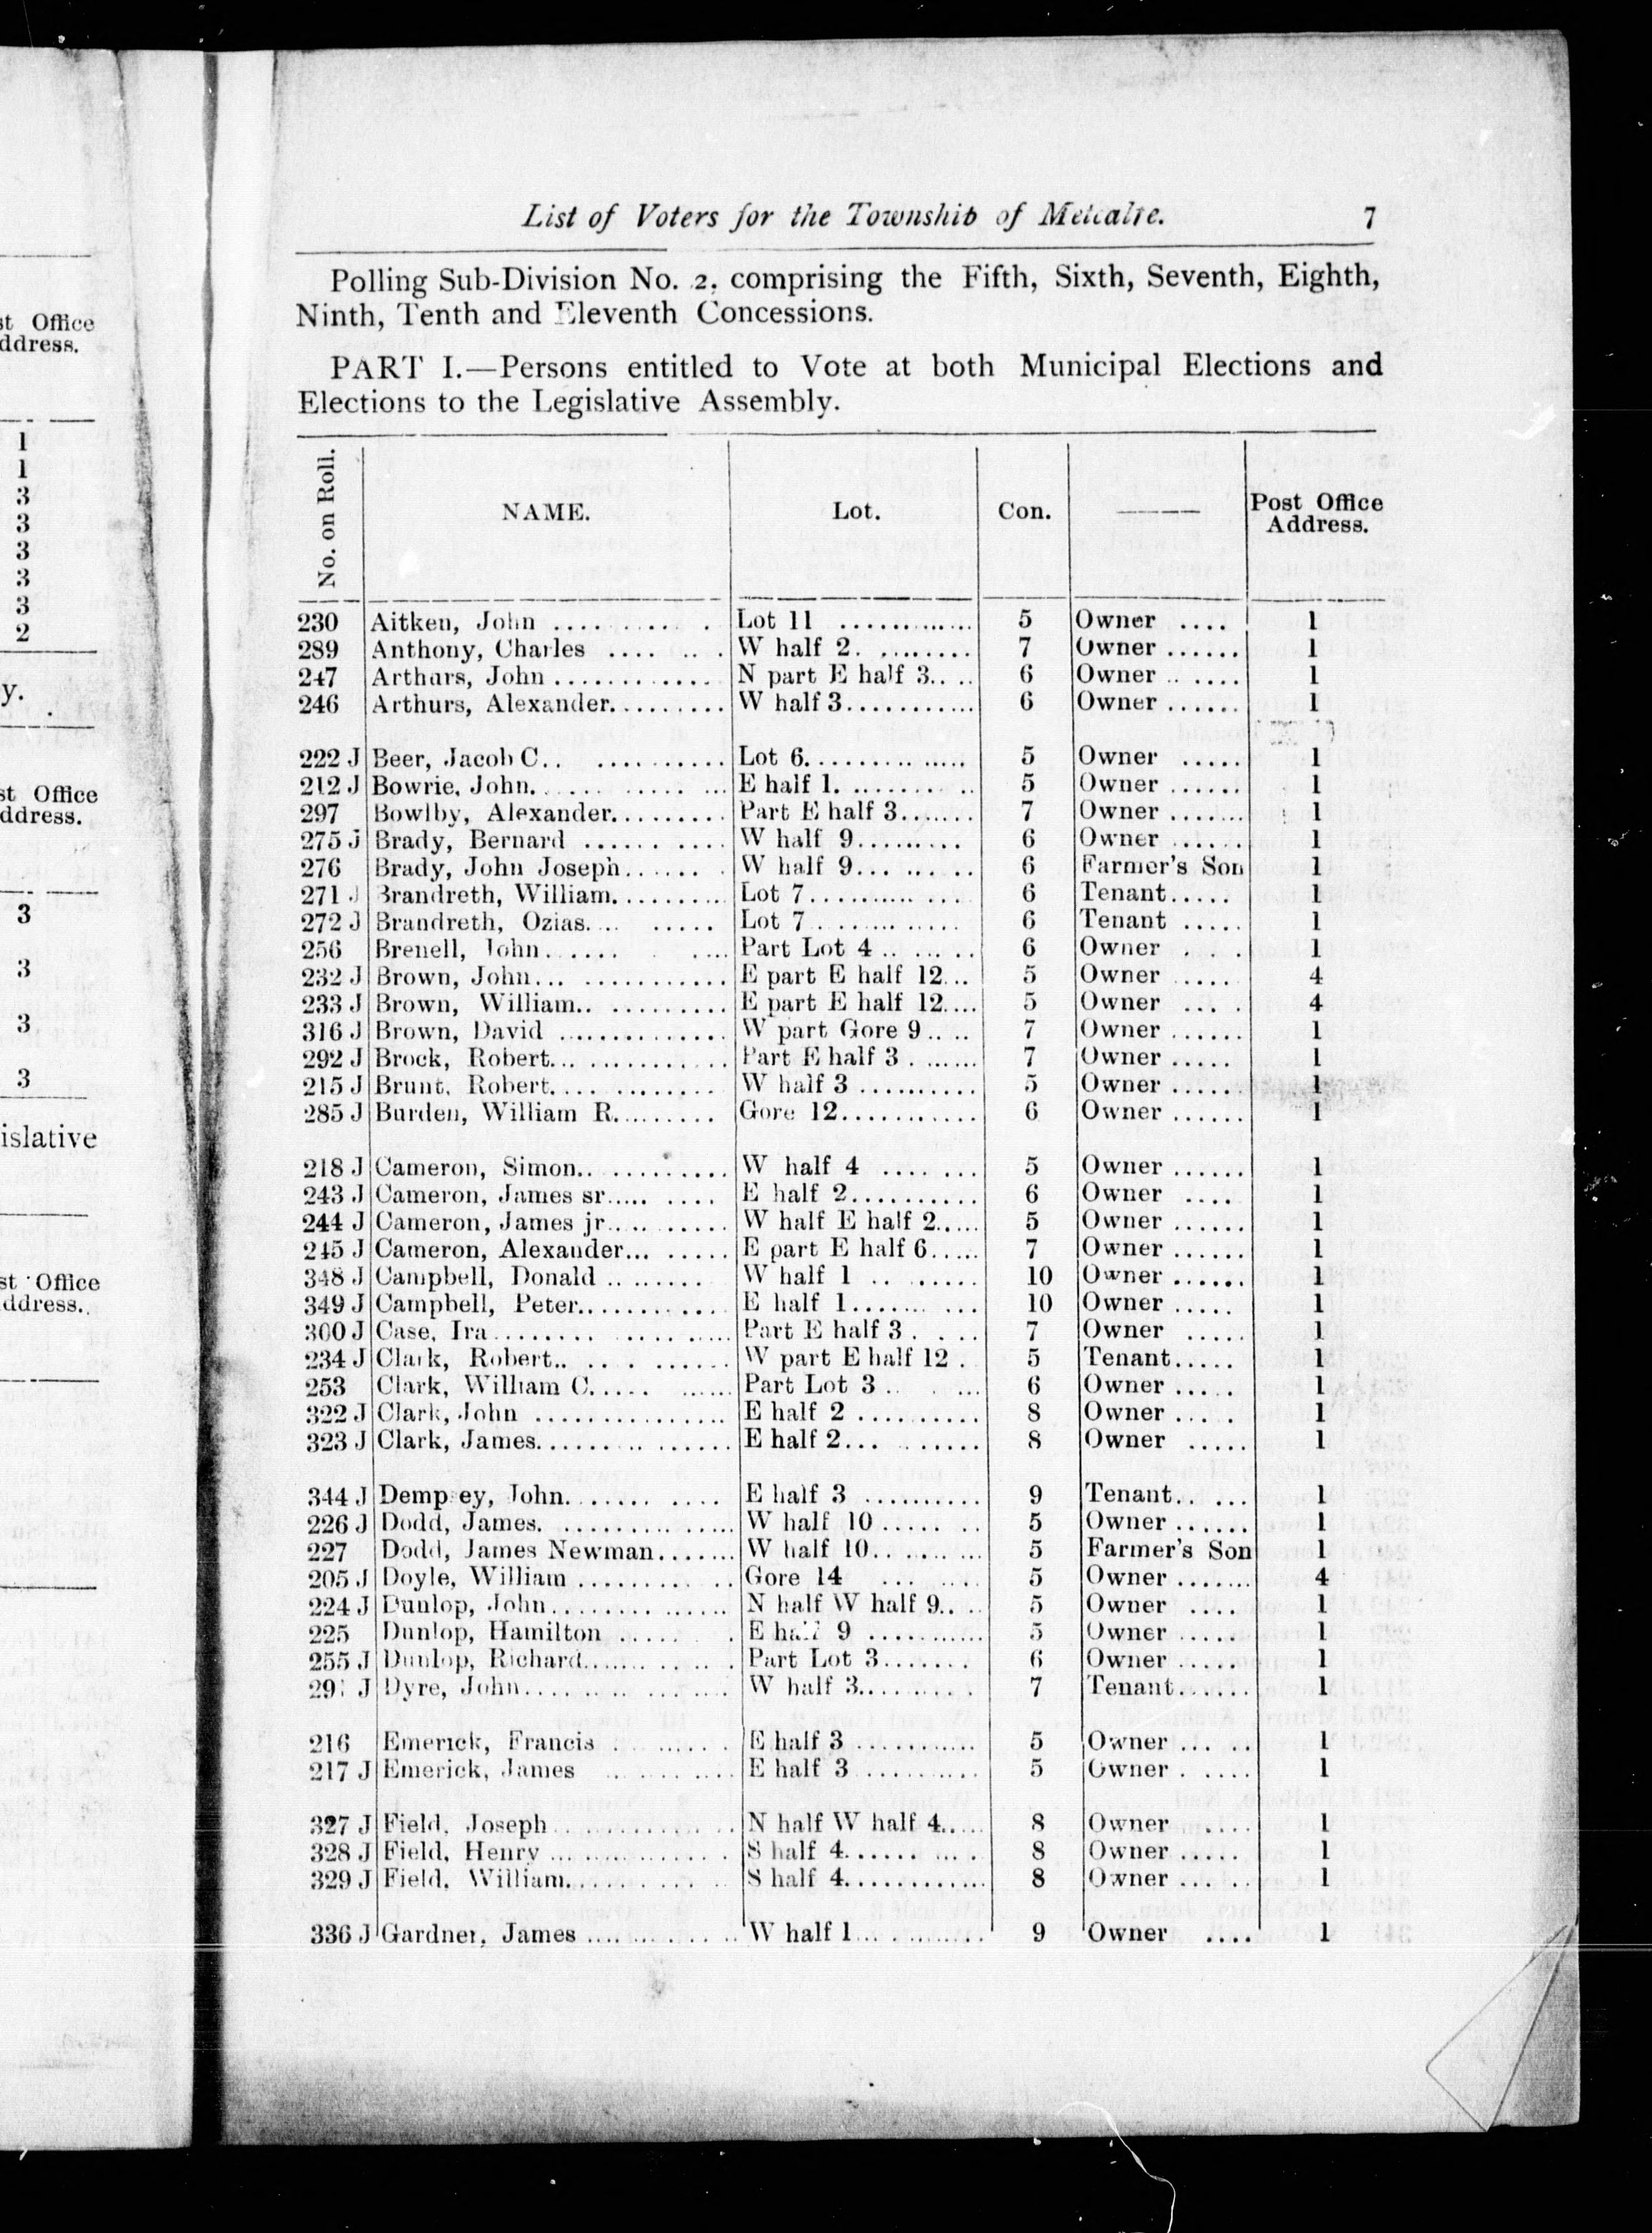 List of Voters for the Township of Metcalfe. 7
Polling Sub-Division No. 2, comprising the Fifth, Sixth, Seventh, Eighth,
Ninth, Tenth and Eleventh Concessions.
PART I.—Persons entitled to Vote at both Municipal Elections and
Elections to the Legislative Assembly.
No. on Roll. NAME. Lot. Con. —— Post Office Address.
230 Aitken, John .......... Lot 11 ............ 5 Owner .... 1
289 Anthony, Charles ........ W half 2. ........ 7 Owner ...... 1
247 Arthurs, John ............ N part E half 3.. .. 6 Owner .. .... 1
246 Arthurs, Alexander......... W half 3........... 6 Owner ...... 1
222 J Beer, Jacob C.. .......... Lot 6.............. 5 Owner ..... 1
212 J Bowrie, John............... E half 1. .......... 5 Owner ...... 1
297 Bowlby, Alexander......... Part E half 3....... 7 Owner ....... 1
275 J Brady, Bernard .......... W half 9......... 6 Owner ...... 1
276 Brady, John Joseph...... . W half 9... ...... 6 Farmer's Son 1
271 J Brandreth, William.......... Lot 7.......... ... 6 Tenant..... 1
272 J Brandreth, Ozias.... ..... Lot 7............. 6 Tenant ..... 1
256 Brenell, John...... .... Part Lot 4 .. ..... 6 Owner . . . 1
232 J Brown, John... ........... E part E half 12... 5 Owner ..... 4
233 J Brown, William.. ......... E part E half 12.... 5 Owner ... . 4
316 J Brown, David .............. W part Gore 9 .. .. 7 Owner ...... 1
292 J Brock, Robert... .......... Part E half 3 . ...... 7 Owner ..... 1
215 J Brunt, Robert.... ........ W half 3 .......... 5 Owner ...... 1
285 J Burden, William R......... Gore 12........... 6 Owner ...... 1
218 J Cameron, Simon.. .......... W half 4 .... ... 5 Owner ...... 1
243 J Cameron, James sr..... .... E half 2.......... 6 Owner .... 1
244 J Cameron, James jr.... ...... W half E half 2..... 5 Owner ...... 1
245 J Cameron, Alexander... ..... E part E half 6..... 7 Owner ...... 1
348 J Campbell, Donald .. ...... W half 1 .. ...... 10 Owner ...... 1
349 J Campbell, Peter............ E half 1....... ... 10 Owner ..... 1
300 J Case, Ira........ ......... Part E half 3 . . .. 7 Owner ..... 1
234 J Clark, Robert.. .. . ...... W part E half 12 . 5 Tenant..... 1
253 Clark, William C..... ...... Part Lot 3 .. . ... 6 Owner ..... 1
322 J Clark, John ................ E half 2 .......... 8 Owner ... . 1
323 J Clark, James............... E half 2... ...... 8 Owner ..... 1
344 J Dempsey, John....... .... E half 3 .......... 9 Tenant.. ... 1
226 J Dodd, James. ............... W half 10 ...... .. 5 Owner ...... 1
227 Dodd, James Newman....... W half 10......... 5 Farmer's Son 1
205 J Doyle, William ............ Gore 14 ... .... 5 Owner ....... 4
224 J Dunlop, John............... N half W half 9.. .. 5 Owner .... 1
225 Dunlop, Hamilton ..... . E half 9 ........... 5 Owner ..... 1
255 J Dunlop, Richard............ Part Lot 3....... 6 Owner ..... 1
J Dyre, John................ W half 3......... 7 Tenant...... 1
216 Emerick, Francis . ...... . E half 3 ........... 5 Owner ... .. 1
217 J Emerick, James .......... E half 3 .......... 5 Owner . .... 1
327 J Field, Joseph.............. N half W half 4..... 8 Owner .... 1
328 J Field, Henry .............. S half 4...... ... . 8 Owner ..... 1
329 J Field, William........... .. S half 4............ 8 Owner ... .. 1
336 J Gardner, James ............ W half 1........... 9 Owner .... 1
st Office
ddress.
1
1
3
3
3
3
3
2
y.
st Office
ddress.
3
3
3
3
islative
st Office
ddress.